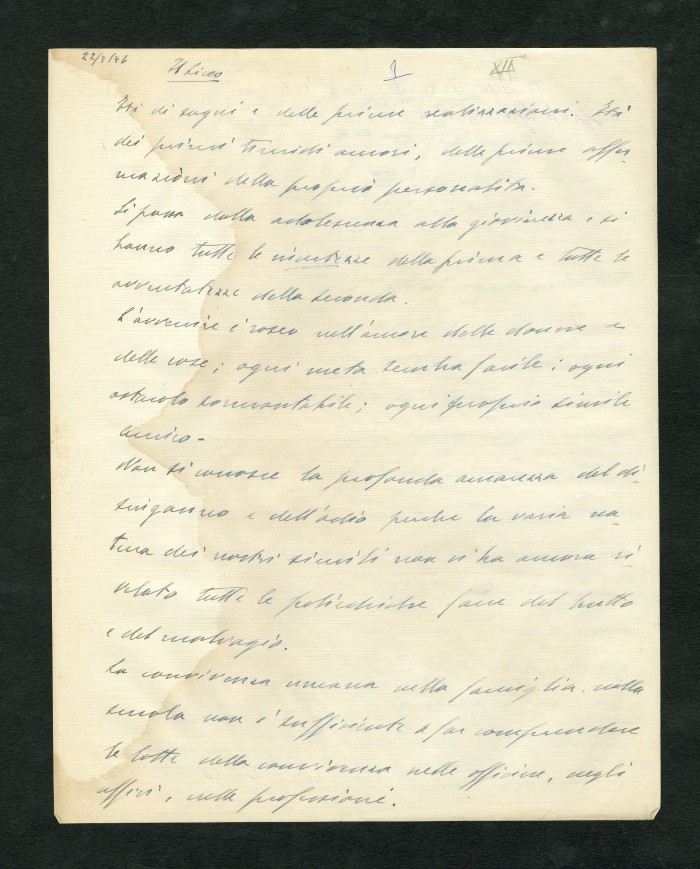 22/4/46
Il Liceo
1
XII
Età di sogni e delle prime realizzazioni. Età
dei primi timidi amori, delle prime affer-
mazioni della propria personalità.
Si passa dalla adolescenza alla giovinezza e si
hanno tutte le incertezze della prima e tutte le
avventatezze della seconda.
L'avvenire è roseo nell'amore delle donne e
delle cose; ogni meta sembra facile; ogni
ostacolo sormontabile; ogni proprio simile
amico-
Non si conosce la profonda amarezza del di-
singanno e dell'odio perché la varia na-
tura dei nostri simili non vi ha ancora ri-
velato tutte le poliedriche facce del brutto
e del malvagio.
La convivenza umana nella famiglia, nella
scuola non è sufficiente a far comprendere
le lotte della convivenza nelle officine, negli
uffici, nelle professioni.